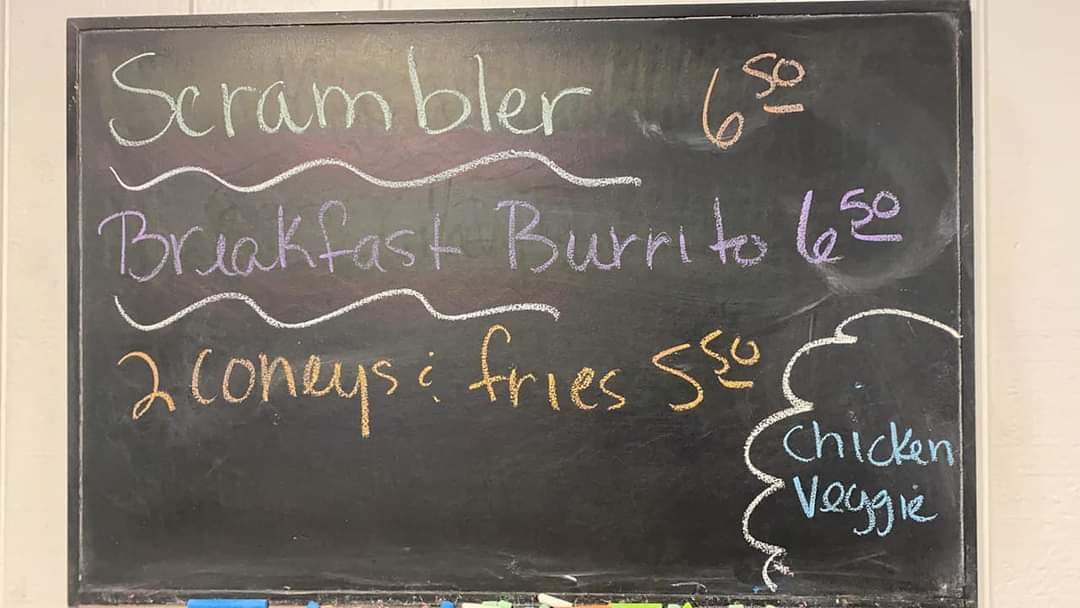 Scrambler 6 50
Breakfast Burrito 6 50
2 coneys & fries 5 50
Chicken
Veggie